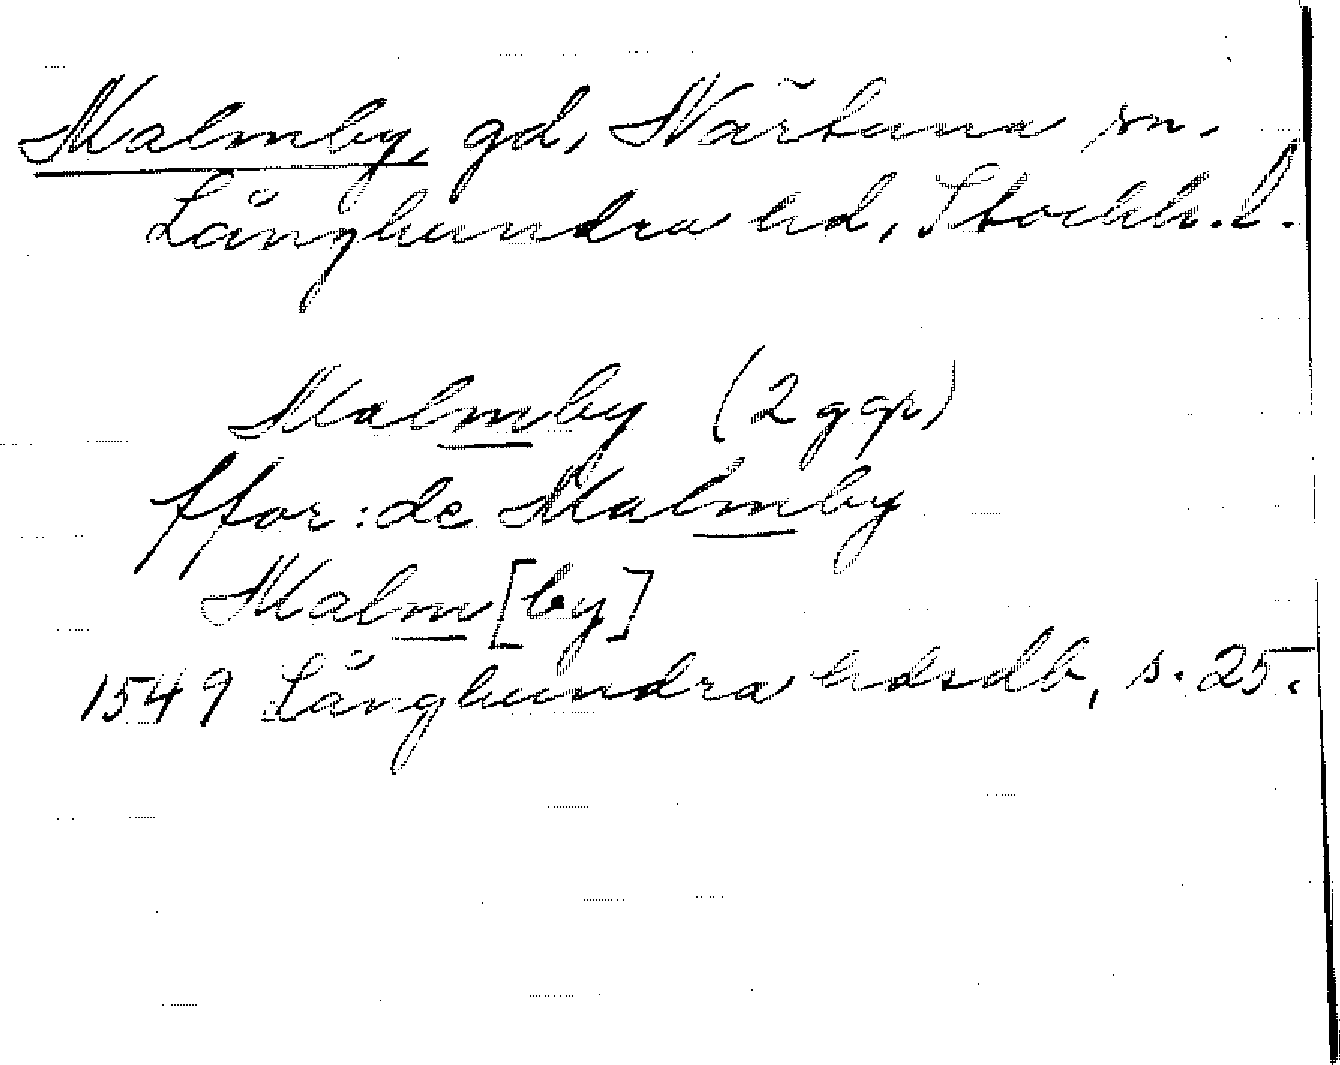 Malmby, gd, Närtuna sn.
Långhundra hd, Stockh. l.
Malmby (2 ggr)
ffor: de Malmby
Malm[by]
1549 Långhundra hdsdb, s. 25.